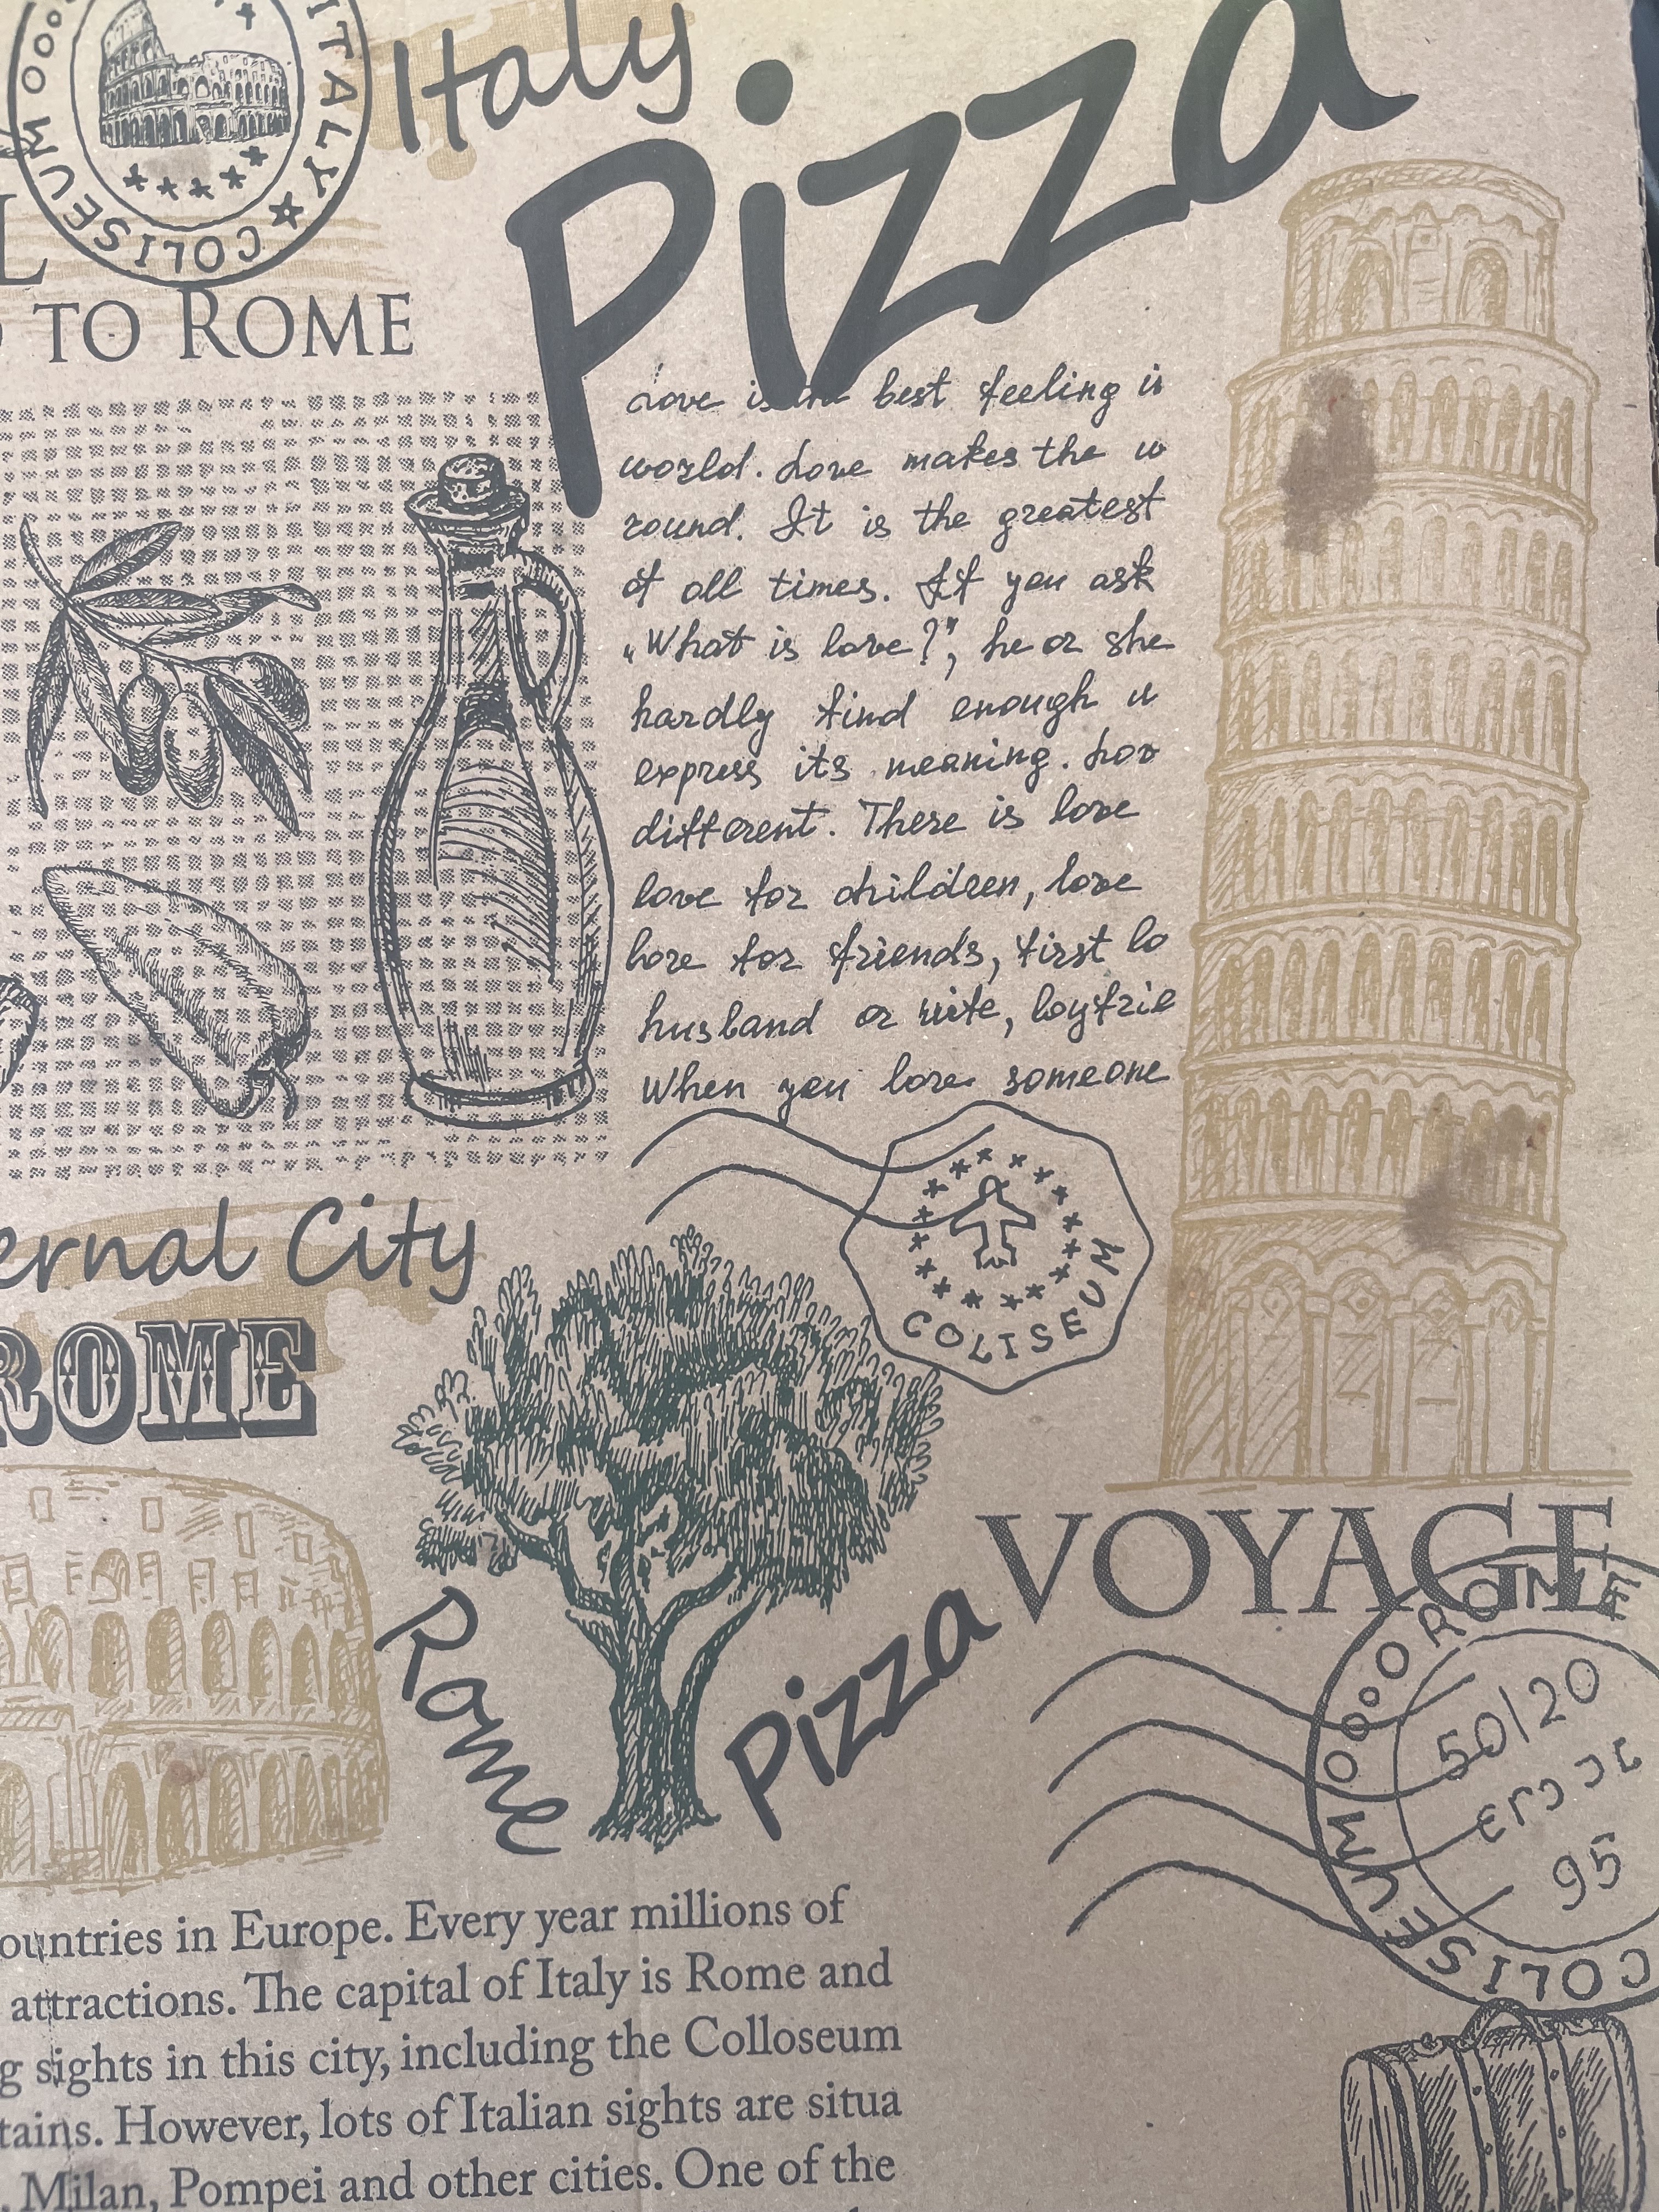 ITALY
COLISEUM
Italy
Pizza
TO ROME
Love is the best feeling
world. Love makes the
round. It is the greatest
of all times. If you ask
„What is love?”, he or she
hardly find enough
express its meaning. Lov
different. There is love
love for children, love
love for friends, first lo
husband or wife, boyfrie
When you love someone
COLISEUM
ernal City
ROME
Rome
Pizza
VOYAGE
ROME
50/20
95
COLISEUM
ountries in Europe. Every year millions of
attractions. The capital of Italy is Rome and
g sights in this city, including the Colloseum
tains. However, lots of Italian sights are situa
Milan, Pompei and other cities. One of the